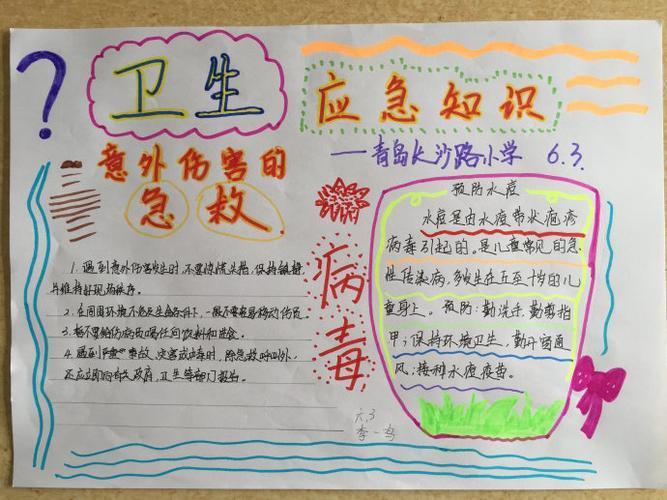 ?
卫生
应急知识
——青岛长沙路小学 6.3.
意外伤害的
急救
1. 遇到意外伤害发生时,不要惊慌失措,保持镇静,
并维持好现场秩序。
2. 在周围环境不危及生命条件下,一般不要轻易移动伤员
3. 暂不要给伤病员喝任何饮料和进食。
4. 遇到严重事故、灾害或中毒时,除急救呼叫外,
还应立即向有关政府、卫生等部门报告。
病毒
预防水痘
水痘是由水痘带状疱疹
病毒引起的。是儿童常见的急
性传染病,多发生在五至十岁的儿
童身上。预防:勤洗手,勤剪指
甲;保持环境卫生,勤开窗通
风;接种水痘疫苗。
六.3
李一鸣